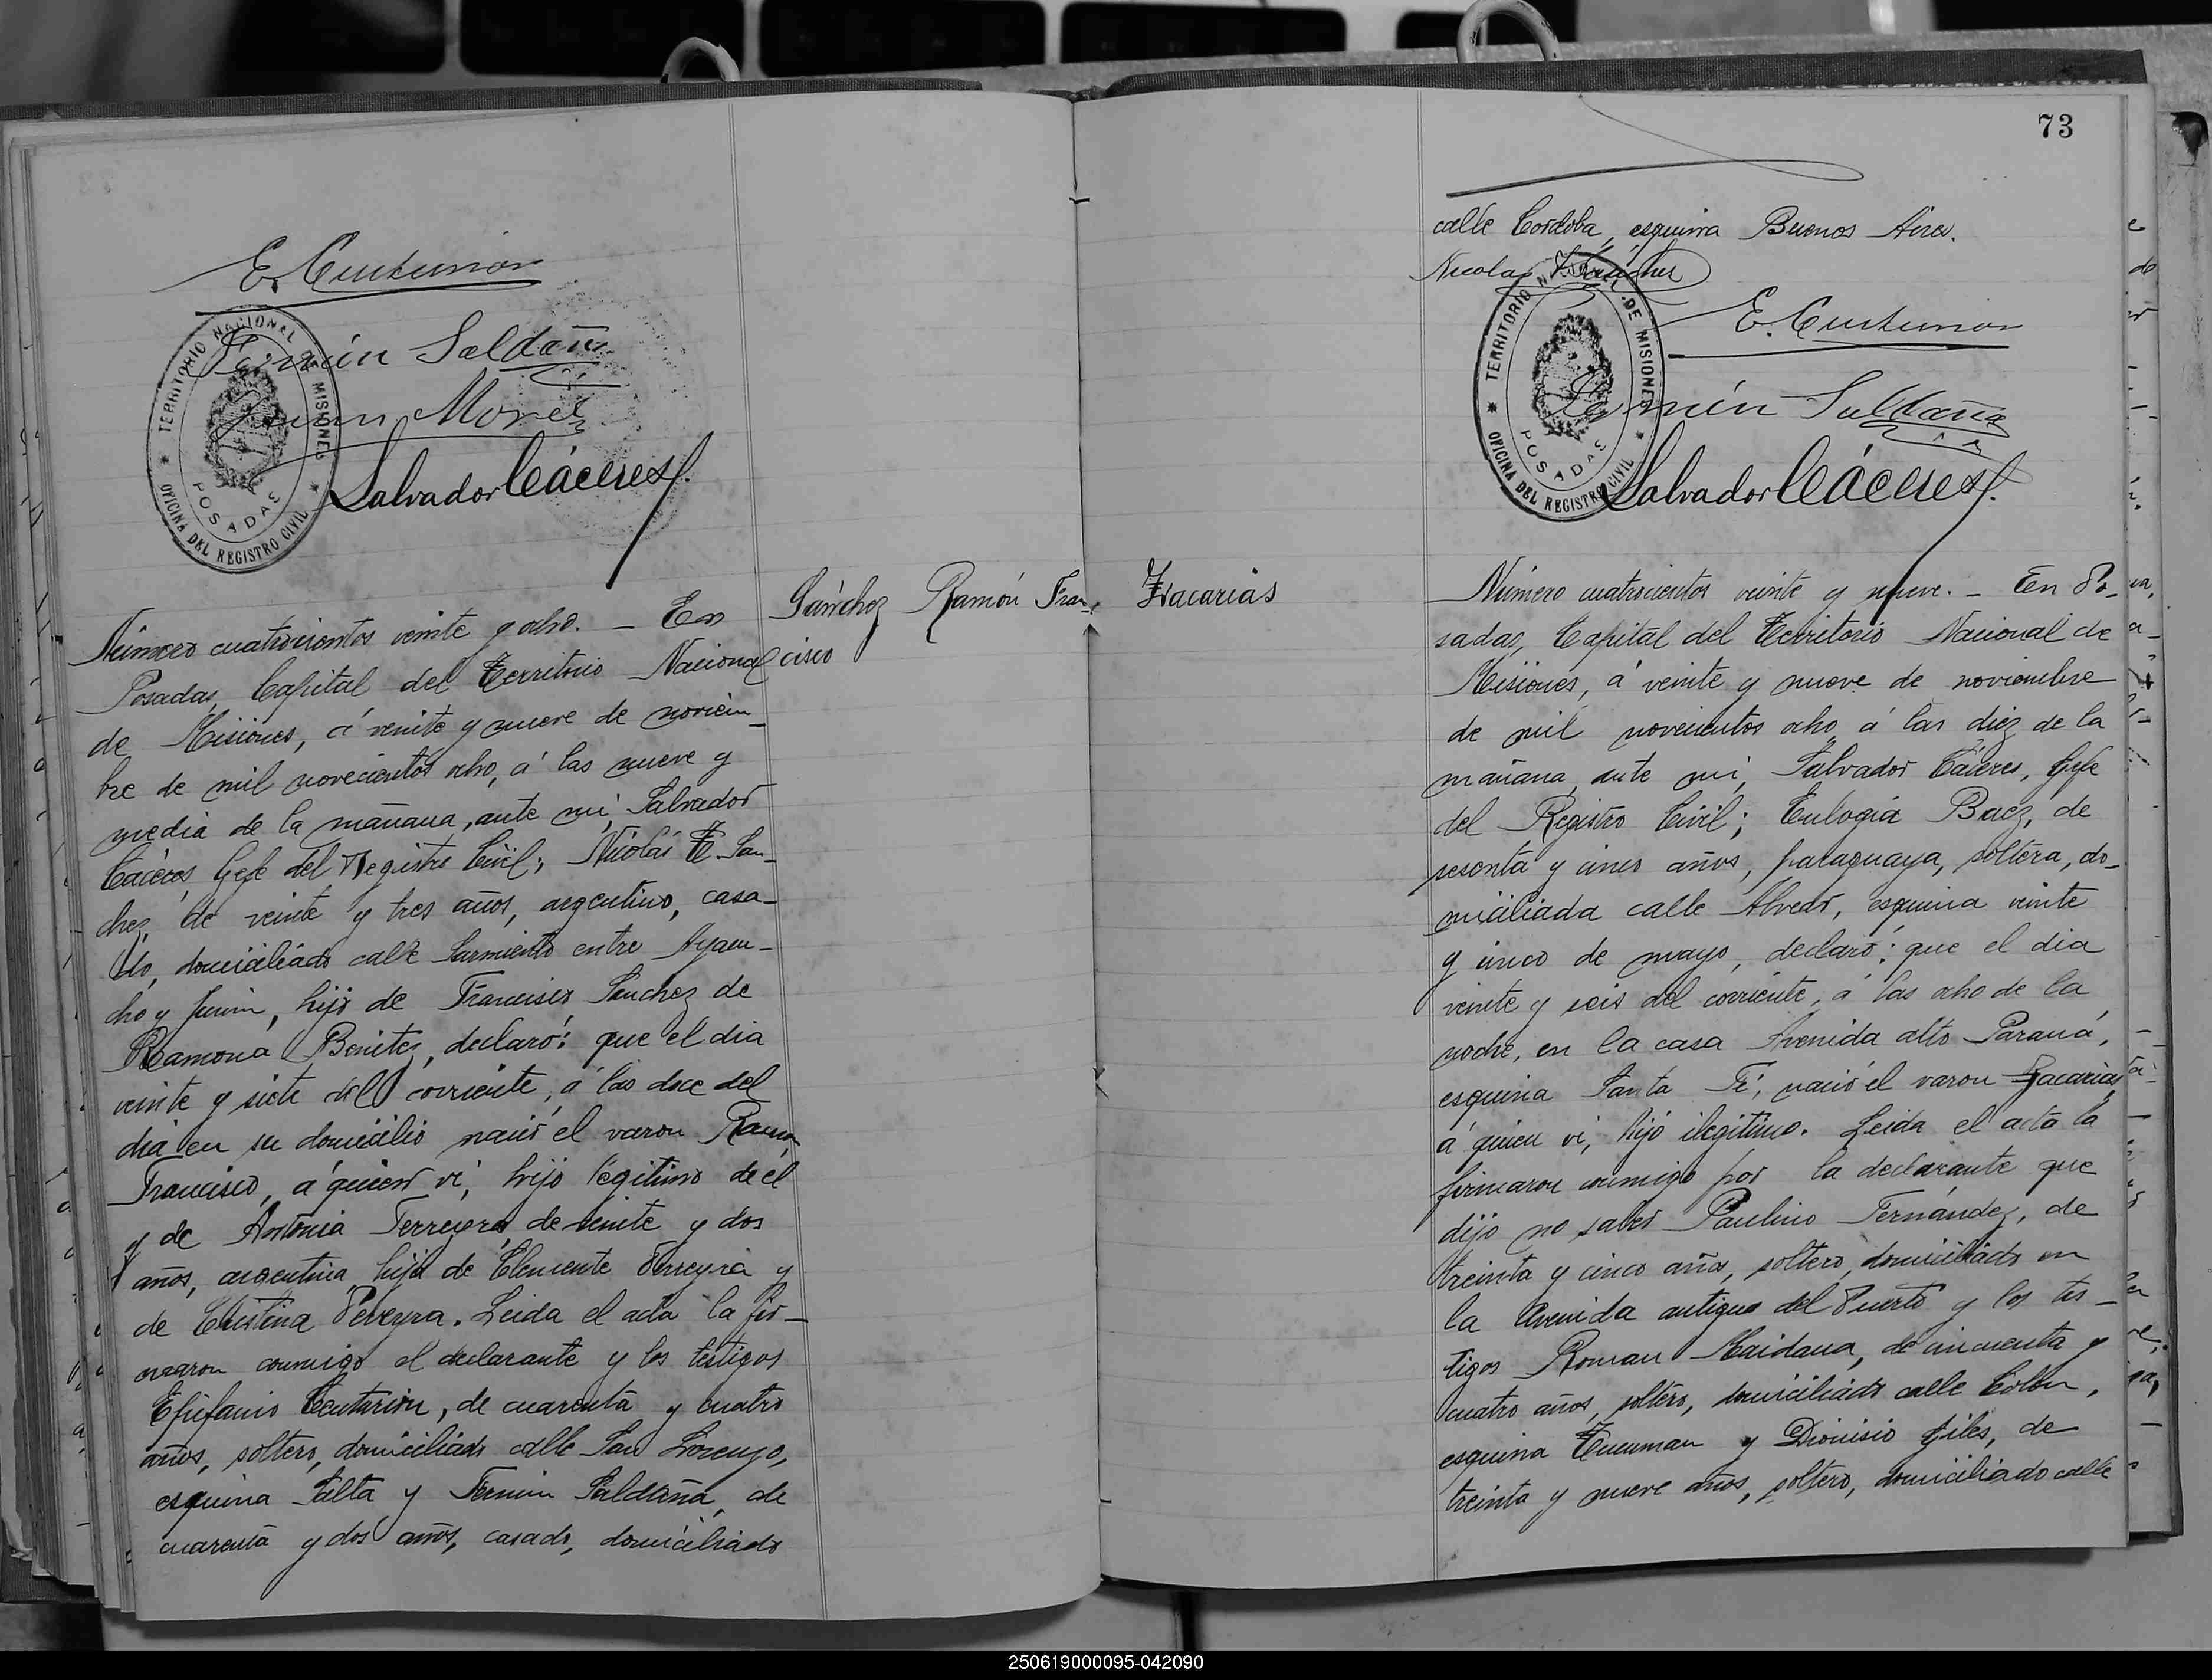 E. Centurion
Fermín Saldaña
Juan More
Salvador Cáceres
TERRITORIO NACIONAL DE MISIONES
POSADAS
OFICINA DEL REGISTRO CIVIL
Sánchez Ramón Fran-
cisco
Número cuatrocientos veinte y ocho. — En
Posadas, Capital del Territorio Nacional
de Misiones, á veinte y nueve de noviem-
bre de mil novecientos ocho, á las nueve y
media de la mañana, ante mi, Salvador
Cáceres, Gefe del Registro Civil; Nicolás E. San-
chez, de veinte y tres años, argentino, casa-
do, domiciliado calle Sarmiento entre Ayacu-
cho y Junin, hijo de Francisco Sanchez de
Ramona Benitez, declaró: que el dia
veinte y siete del corriente, á las doce del
dia en su domicilio nació el varon Ramon
Francisco, a quien vi, hijo legitimo de él
y de Antonia Ferreyra, de veinte y dos
años, argentina, hija de Clemente Ferreyra y
de Cristina Pereyra. Leida el acta la fir-
maron conmigo el declarante y los testigos
Epifanio Centurión, de cuarenta y cuatro
años, soltero, domiciliado calle San Lorenzo,
esquina Salta y Fermin Saldaña, de
cuarenta y dos años, casado, domiciliado
73
calle Cordoba, esquina Buenos Aires.
Nicolas Sanchez
E. Centurion
Fermín Saldaña
Salvador Cáceres
TERRITORIO NACIONAL DE MISIONES
POSADAS
OFICINA DEL REGISTRO CIVIL
Zacarias
Número cuatrocientos veinte y nueve. — En Po-
sadas, Capital del Territorio Nacional de
Misiones, á veinte y nueve de noviembre
de mil novecientos ocho, á las diez de la
mañana, ante mi, Salvador Cáceres, Gefe
del Registro Civil; Eulogia Baez, de
sesenta y cinco años, paraguaya, soltera, do-
miciliada calle Alvear, esquina veinte
y cinco de mayo, declaró: que el dia
veinte y seis del corriente, á las ocho de la
noche, en la casa Avenida alto Paraná,
esquina Santa Fé, nació el varon Zacarias,
á quien vi, hijo ilegitimo. Leida el acta la
firmaron conmigo por la declarante que
dijo no saber Paulino Fernández, de
treinta y cinco años, soltero, domiciliado en
la Avenida antigua del Puerto y los tes-
tigos Roman Maidana, de cincuenta y
cuatro años, soltero, domiciliado calle Colon,
esquina Tucuman y Dionisio Giles, de
treinta y nueve años, soltero, domiciliado calle
250619000095-042090